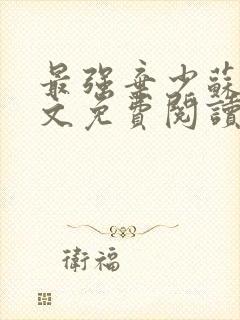 最强弃少蘇
文免費閱讀
衛福